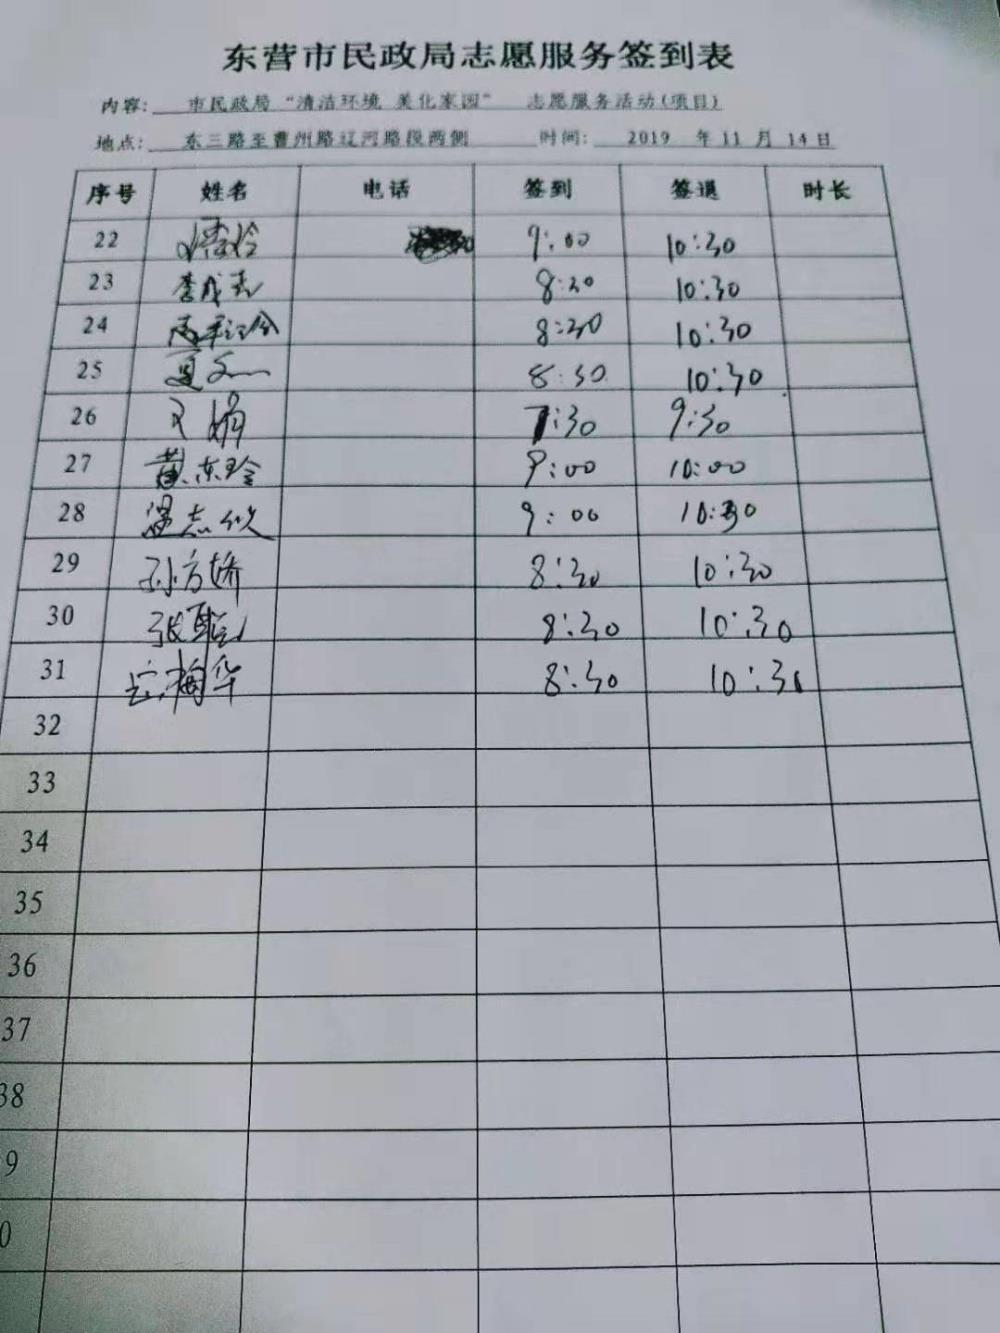 东营市民政局志愿服务签到表
内容: 市民政局“清洁环境 美化家园” 志愿服务活动(项目)
地点: 东三路至曹州路辽河路段两侧 时间: 2019 年 11 月 14 日
序号 姓名 电话 签到 签退 时长
22 9:00 10:30
23 李成志 8:30 10:30
24 8:30 10:30
25 夏 8:30 10:30
26 7:30 9:30
27 黄东玲 9:00 10:00
28 温志 9:00 10:30
29 孙方娇 8:30 10:30
30 张 8:30 10:30
31 梅华 8:30 10:30
32
33
34
35
36
37
38
9
0